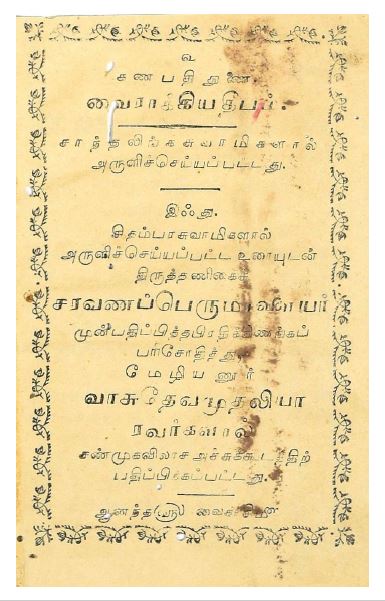 உ
கணபதி துணை.
வைராக்கியதீபம்.
சாந்தலிங்கசுவாமிகளால்
அருளிச்செய்யப்பட்டது.
இஃது.
சிதம்பரசுவாமிகளால்
அருளிச்செய்யப்பட்ட உரையுடன்
திருத்தணிகைச்
சரவணப்பெருமாளையர்
முன்பதிப்பித்தபிரதிக்கிணங்கப்
பரிசோதித்து,
மேழியனூர்
வாசுதேவமுதலியா
ரவர்களால்
சண்முகவிலாச அச்சுக்கூடத்திற்
பதிப்பிக்கப்பட்டது.
ஆனந்த